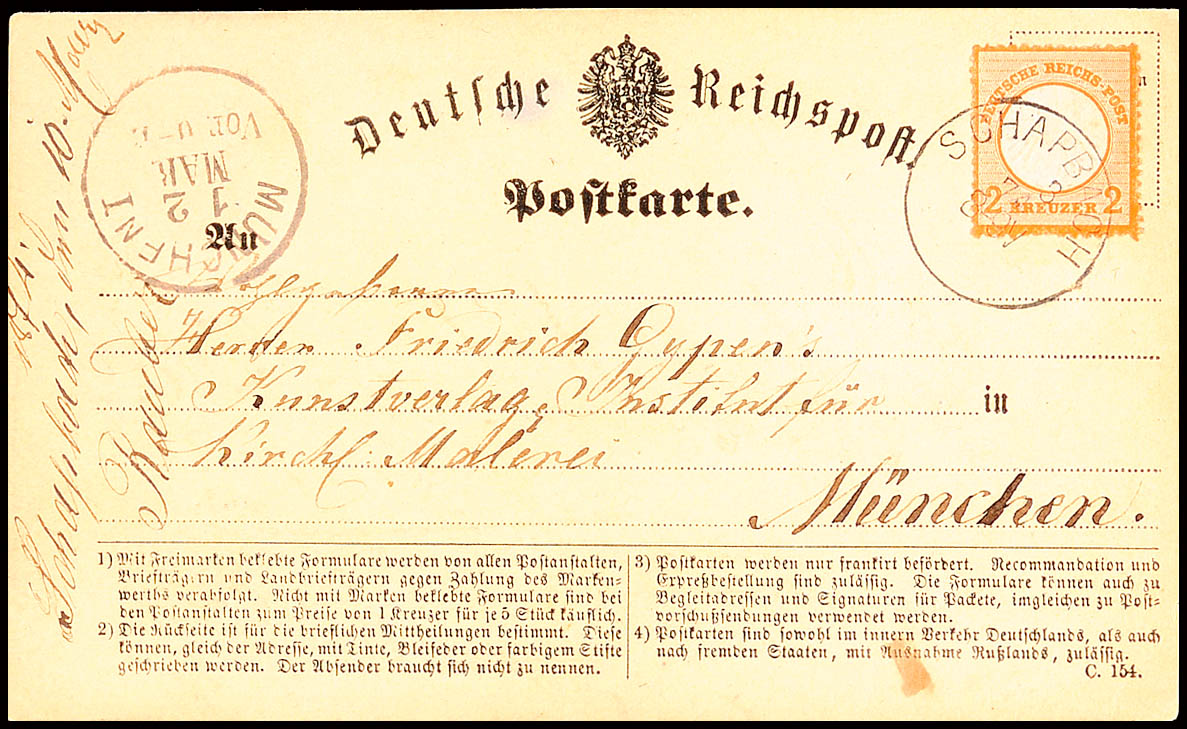 Deutsche Reichspost.
Postkarte.
DEUTSCHE REICHS-POST
2 KREUZER 2
SCHAPBACH
MUENCHEN I
12
MAR
An
Herrn Friedrich Gypen's
Kunstverlag, Institut für
in
Kirchl. Malerei
München.
den 10. März
1874.
1) Mit Freimarken beklebte Formulare werden von allen Postanstalten,
Briefträgern und Landbriefträgern gegen Zahlung des Marken-
werths verabfolgt. Nicht mit Marken beklebte Formulare sind bei
den Postanstalten zum Preise von 1 Kreuzer für je 5 Stück käuflich.
2) Die Rückseite ist für die brieflichen Mittheilungen bestimmt. Diese
können, gleich der Adresse, mit Tinte, Bleifeder oder farbigem Stifte
geschrieben werden. Der Absender braucht sich nicht zu nennen.
3) Postkarten werden nur frankirt befördert. Recommandation und
Expreßbestellung sind zulässig. Die Formulare können auch zu
Begleitadressen und Signaturen für Packete, imgleichen zu Post-
vorschußsendungen verwendet werden.
4) Postkarten sind sowohl im innern Verkehr Deutschlands, als auch
nach fremden Staaten, mit Ausnahme Rußlands, zulässig.
C. 154.